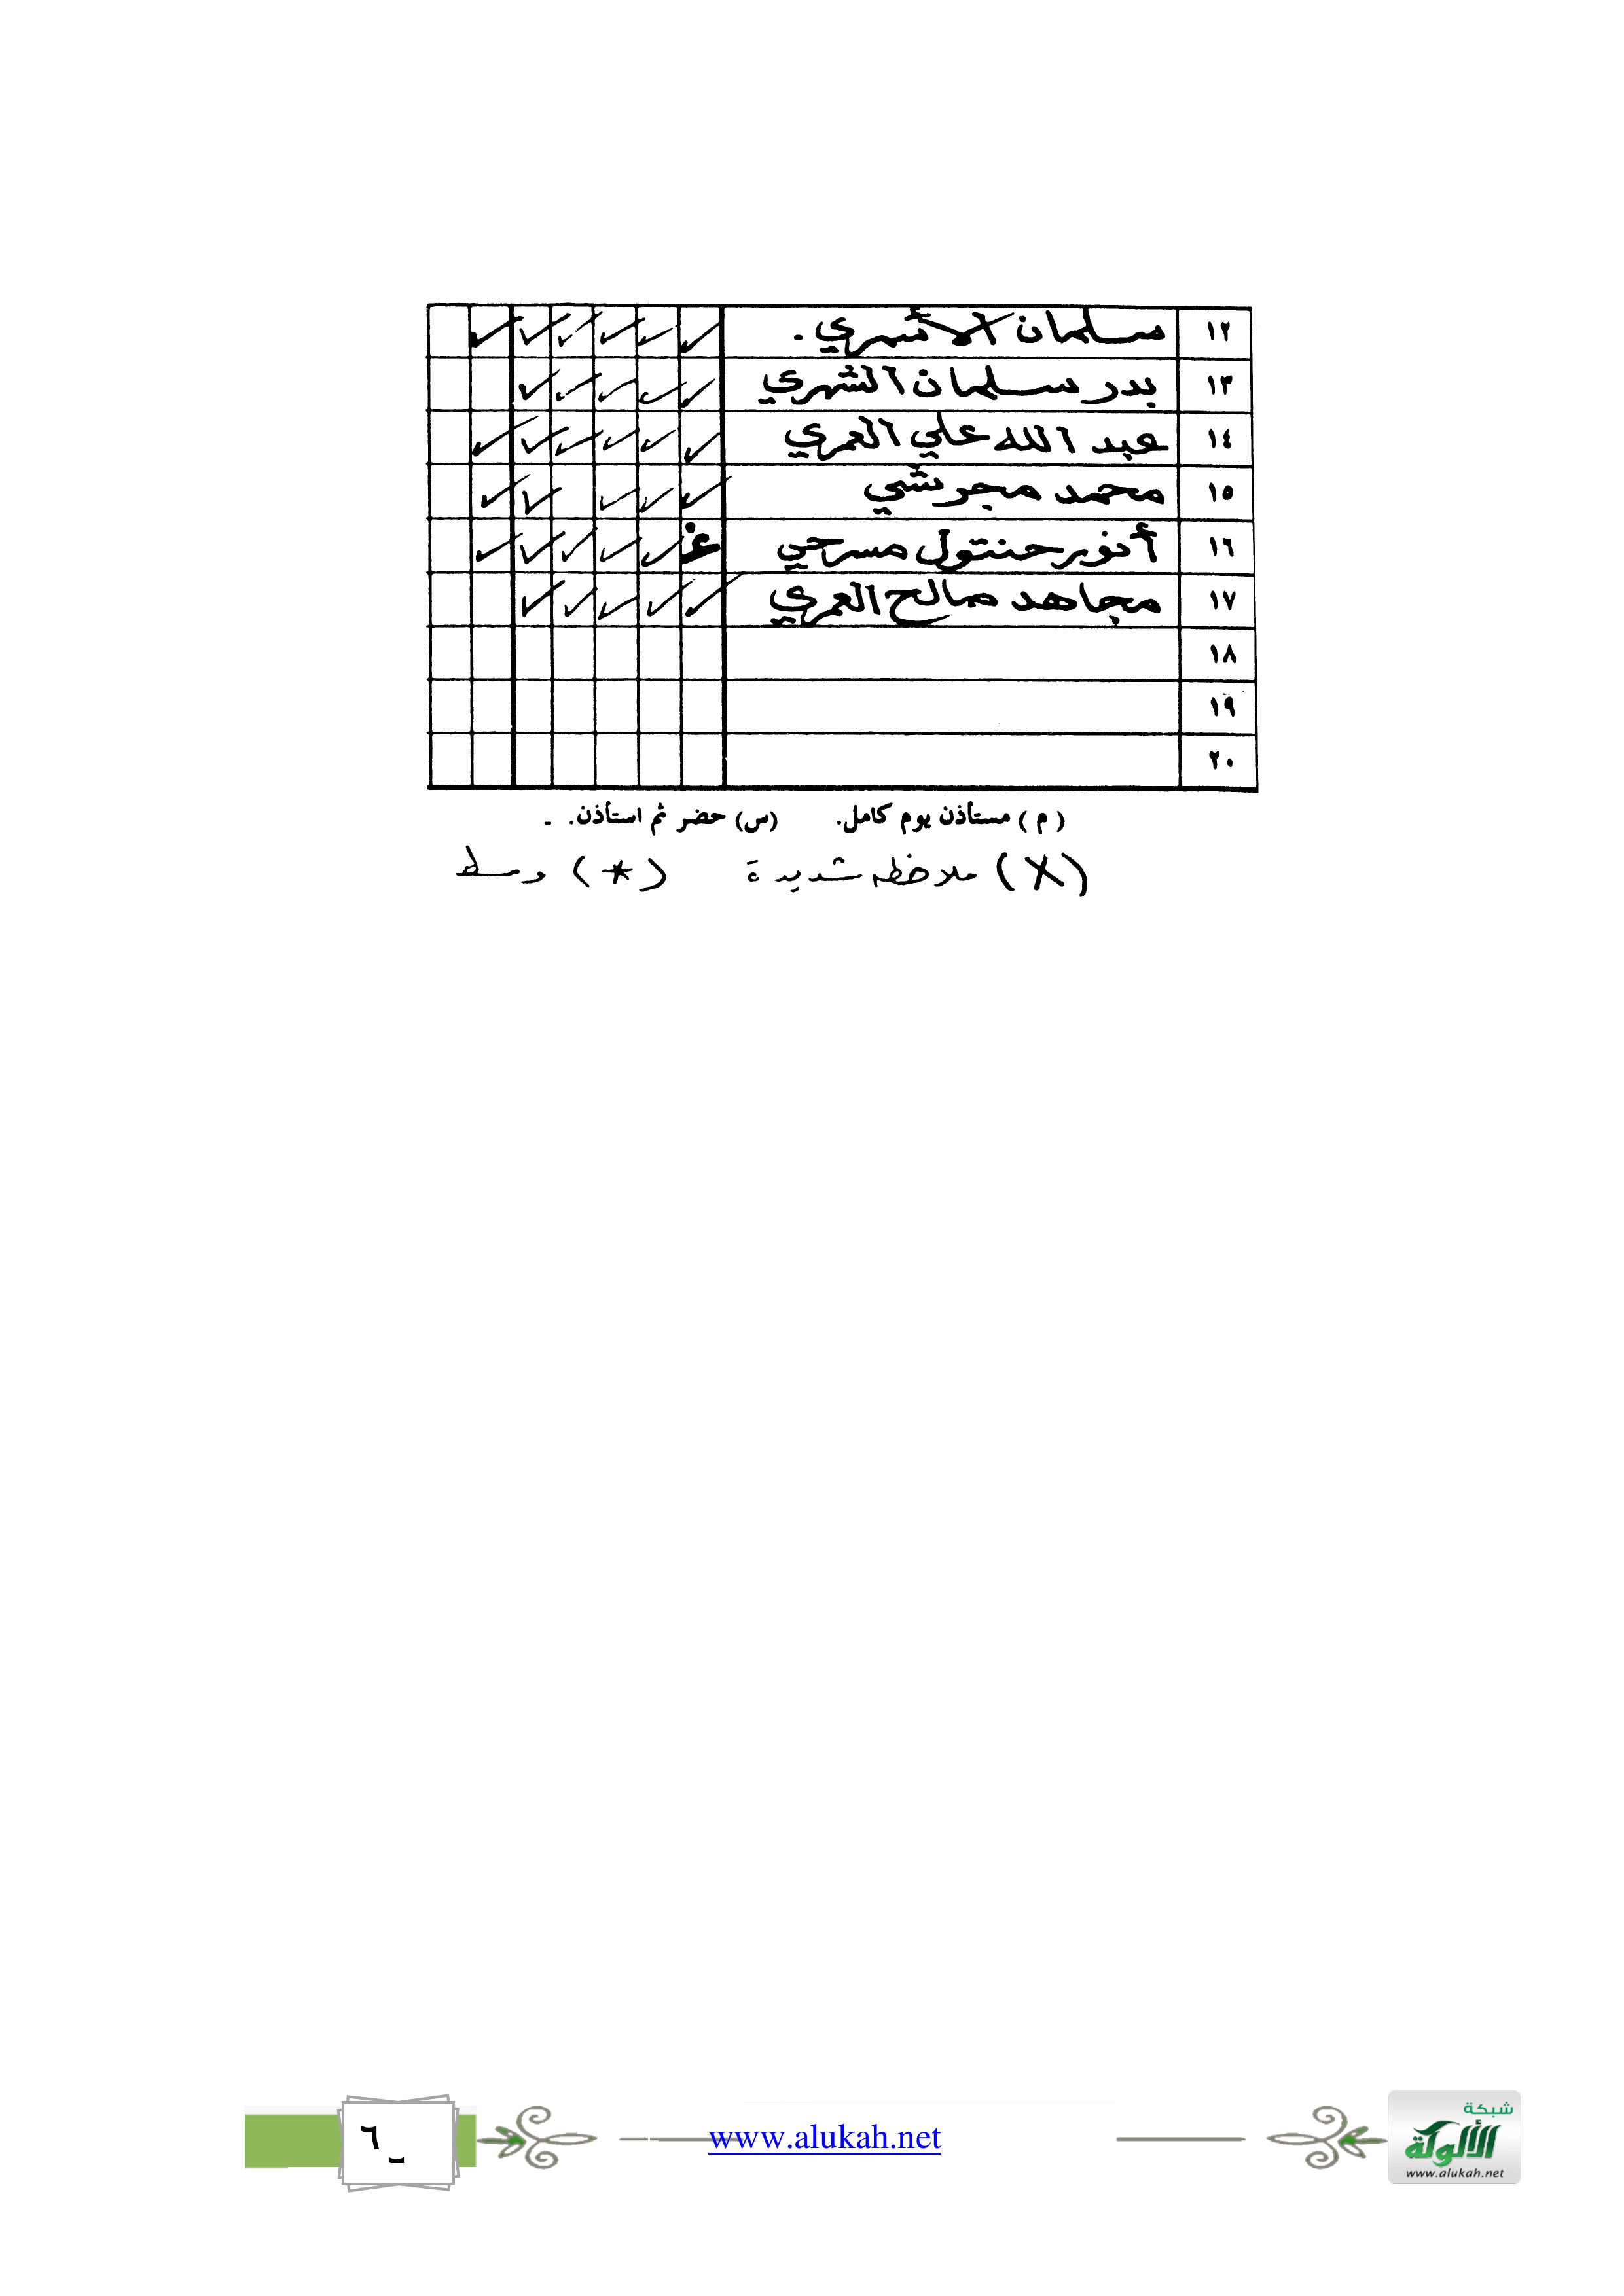 ١٢ سلمان الأسمري. ✓ ✓ ✓ ✓ ✓ ✓
١٣ بدر سلمان الشهري ✓ ✓ ✓ ✓ ✓
١٤ عبد الله علي العمري ✓ ✓ ✓ ✓ ✓ ✓
١٥ محمد مجرشي ✓ ✓ ✓ ✓ ✓
١٦ أنور حنتول مسرحي غ ✓ ✓ ✓ ✓ ✓
١٧ مجاهد صالح العمري ✓ ✓ ✓ ✓ ✓
١٨
١٩
٢٠
( م ) مستأذن يوم كامل. (س) حضر ثم استأذن. -
(X) ملاحظه شديدة (*) وسط
شبكة
الألوكة
www.alukah.net
www.alukah.net
٦